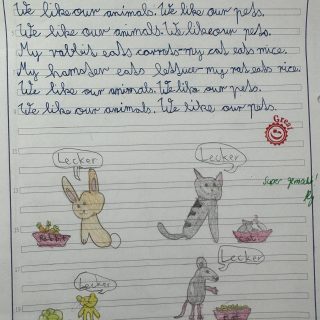 We like our animals. We like our pets.
We like our animals. We like our pets.
My rabbit eats carrots-my cat eats mice.
My hamster eats lettuce-my rat eats rice.
We like our animals. We like our pets.
We like our animals. We like our pets.
Great
Lecker
Lecker
Super gemacht!
Rabbit
Cat
Lecker
Lecker